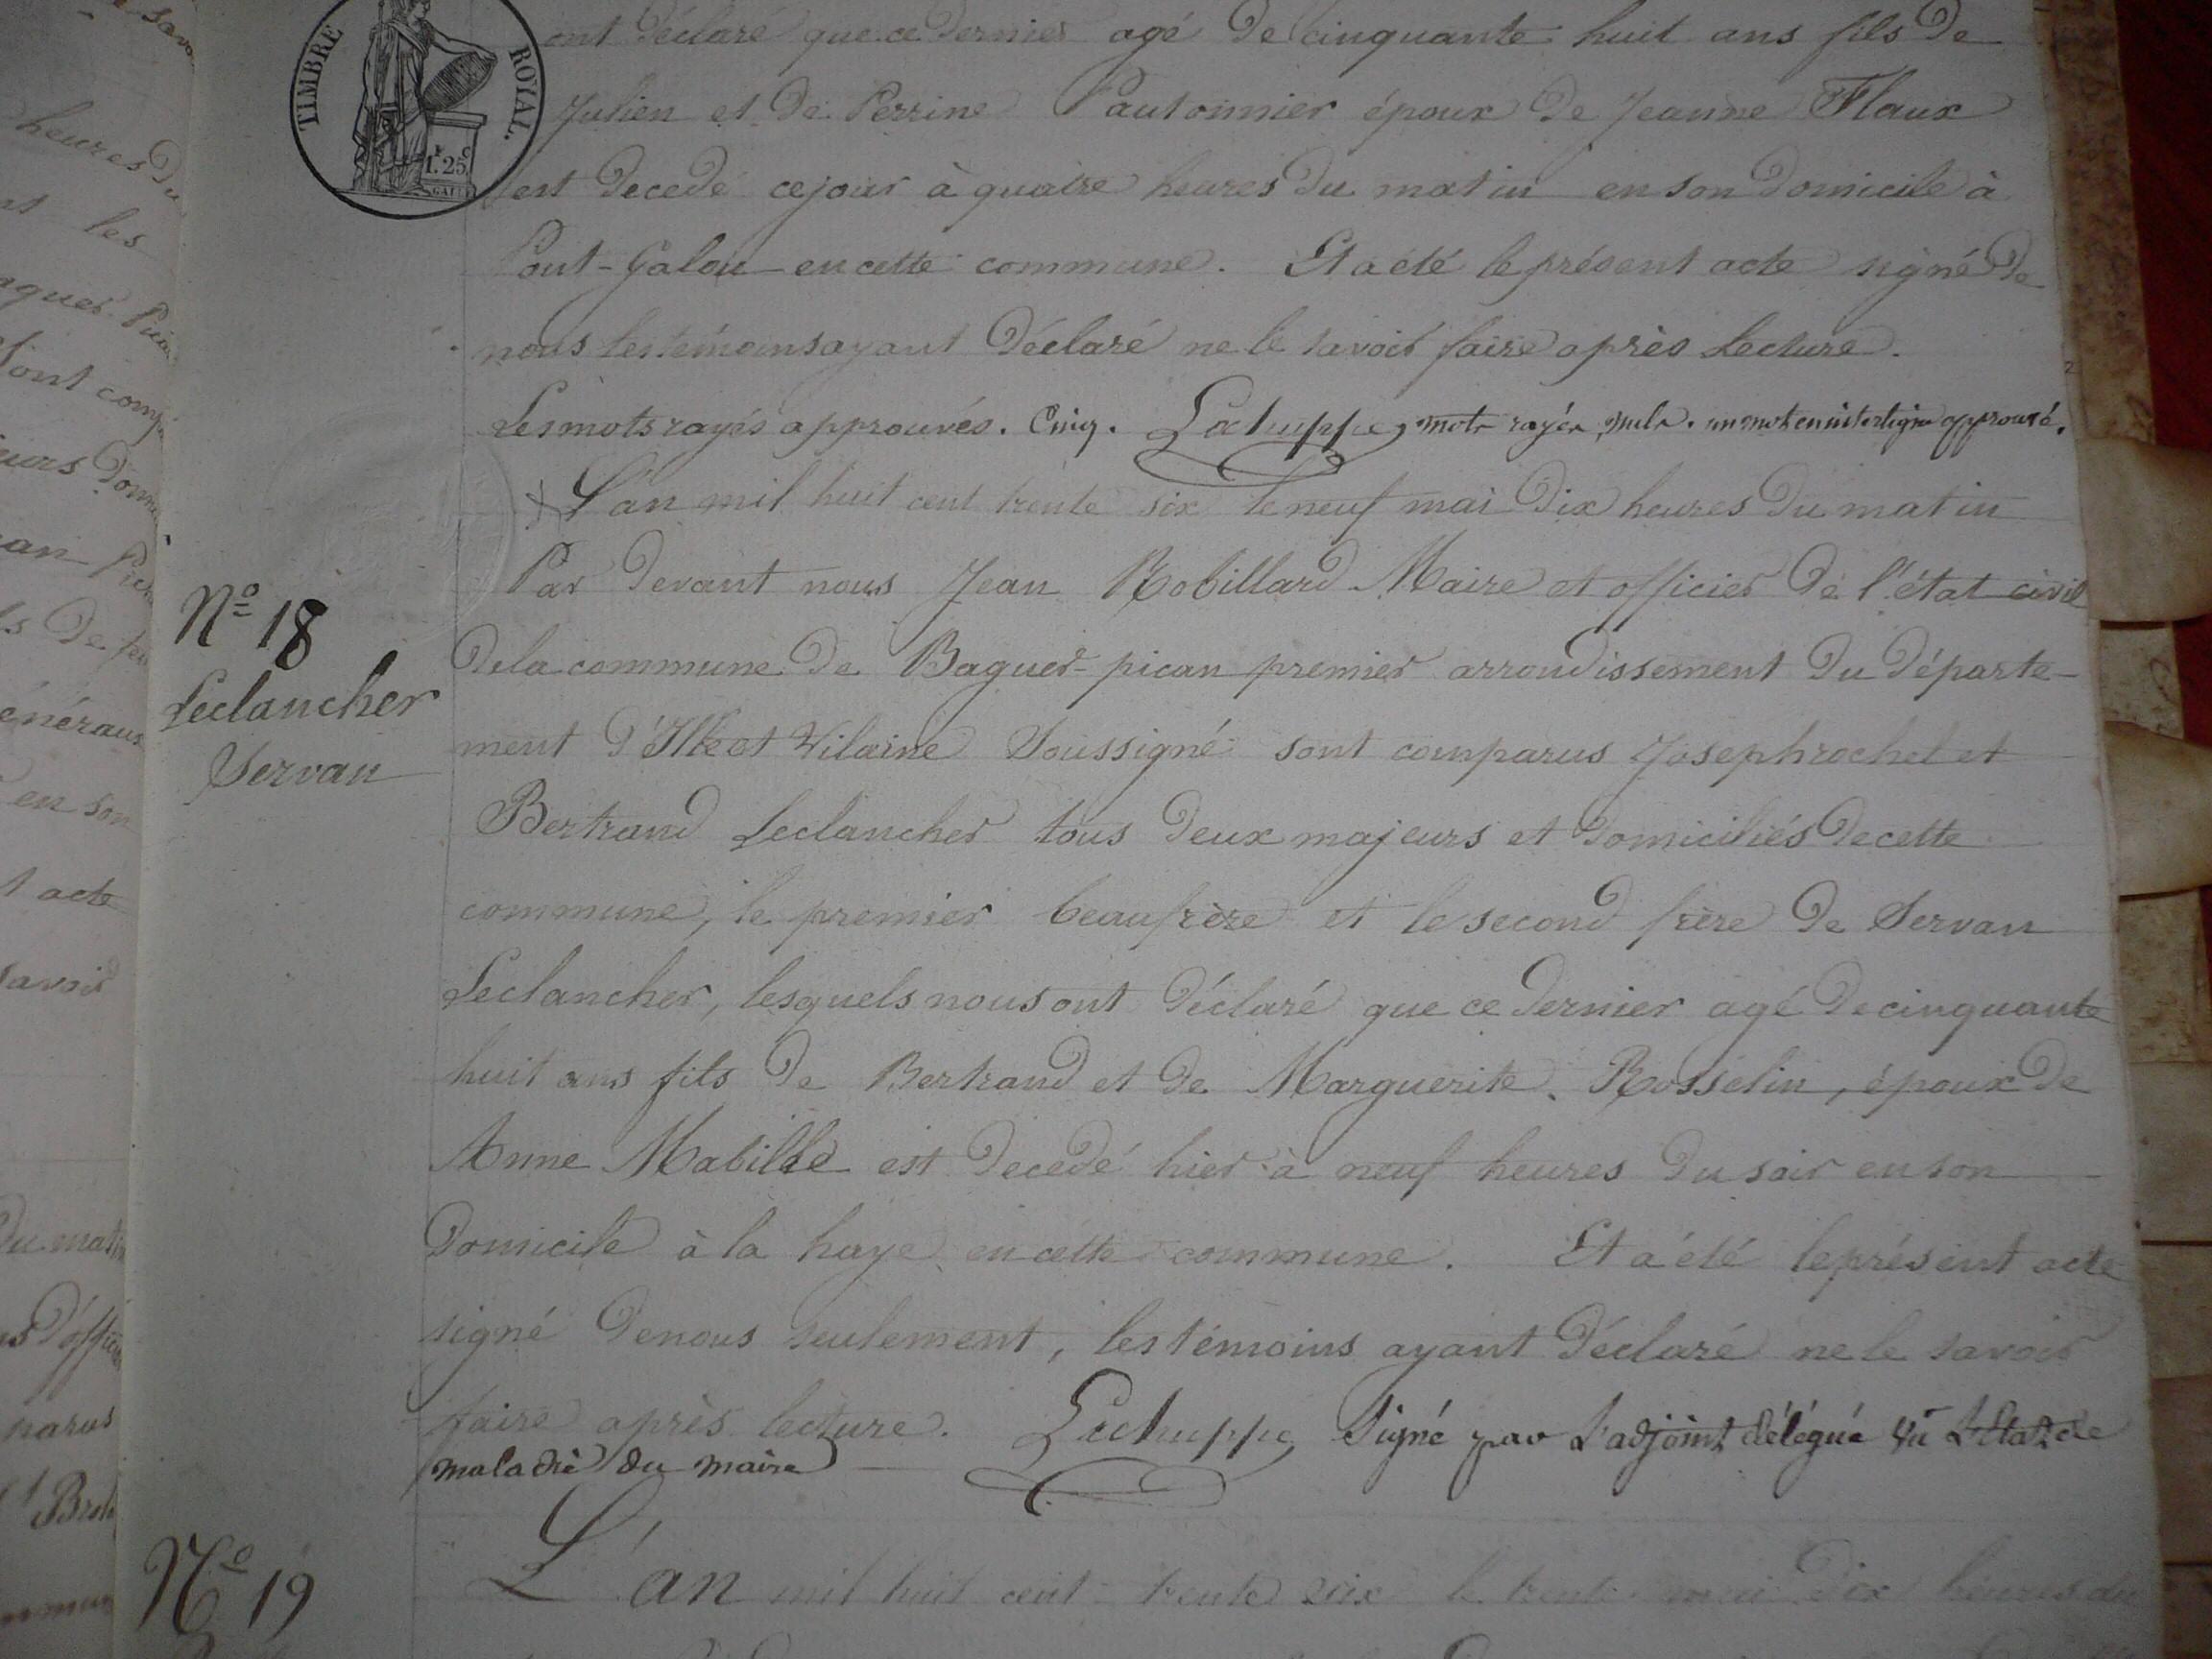 TIMBRE ROYAL.
1. 25
ont déclaré que ce dernier agé de cinquante huit ans fils de
Julien et de Perrine Pautonnier époux de Jeanne Flaux
est decedé ce jour à quatre heures du matin en son domicile à
Pont-Galou en cette commune. Et a été le présent acte signé de
nous les témoins ayant déclaré ne le savoir faire après lecture.
Les mots rayés approuvés. Cinq. mots rayés nuls. un mot en interligne approuvé.
L'an mil huit cent trente six le neuf mai dix heures du matin
Par devant nous Jean Robillard Maire et officier de l'état civil
de la commune de Baguer-pican premier arrondissement du départe-
N° 18
Leclancher
Servan
ment d'Ille et Vilaine Soussigné sont comparus Joseph rochel et
Bertrand Leclancher tous deux majeurs et domiciliés de cette
commune, le premier beaufrère et le second frère de Servan
Leclancher, lesquels nous ont déclaré que ce dernier agé de cinquante
huit ans fils de Bertrand et de Marguerite Rosselin, époux de
Anne Mabille est decedé hier à neuf heures du soir en son
domicile à la haye en cette commune. Et a été le présent acte
signé de nous seulement, les témoins ayant déclaré ne le savoir
faire après lecture. Signé par L'adjoint délégué vu L'Etat de
maladie du maire
N° 19
L'an mil huit cent trente six le trente mai dix heures du